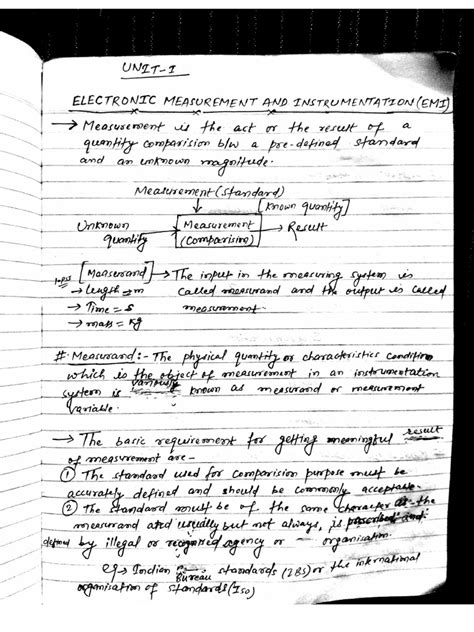 UNIT-I
ELECTRONIC MEASUREMENT AND INSTRUMENTATION (EMI)
→ Measurement is the act or the result of a
quantity comparision b/w a pre-defined standard
and an unknown magnitude.
Measurement (standard)
[Known quantity]
Unknown quantity → Measurement (Comparision) → Result
Input [Measurand] → The input in the measuring system is
→ length = m called measurand and the output is called
→ Time = s measurement.
→ mass = kg
# Measurand:- The physical quantity or characteristics condition
which is the object of measurement in an instrumentation
system is variously known as measurand or measurement
variable.
→ The basic requirement for getting meaningful result
of measurement are -
① The standard used for comparision purpose must be
accurately defined and should be commonly acceptable.
② The standard must be of the same character as the
measurand and usually but not always, is prescribed and
defined by illegal or recognised agency or organisation.
eg → Indian Bureau standards (IBS) or the international
organisation of standards (ISO)